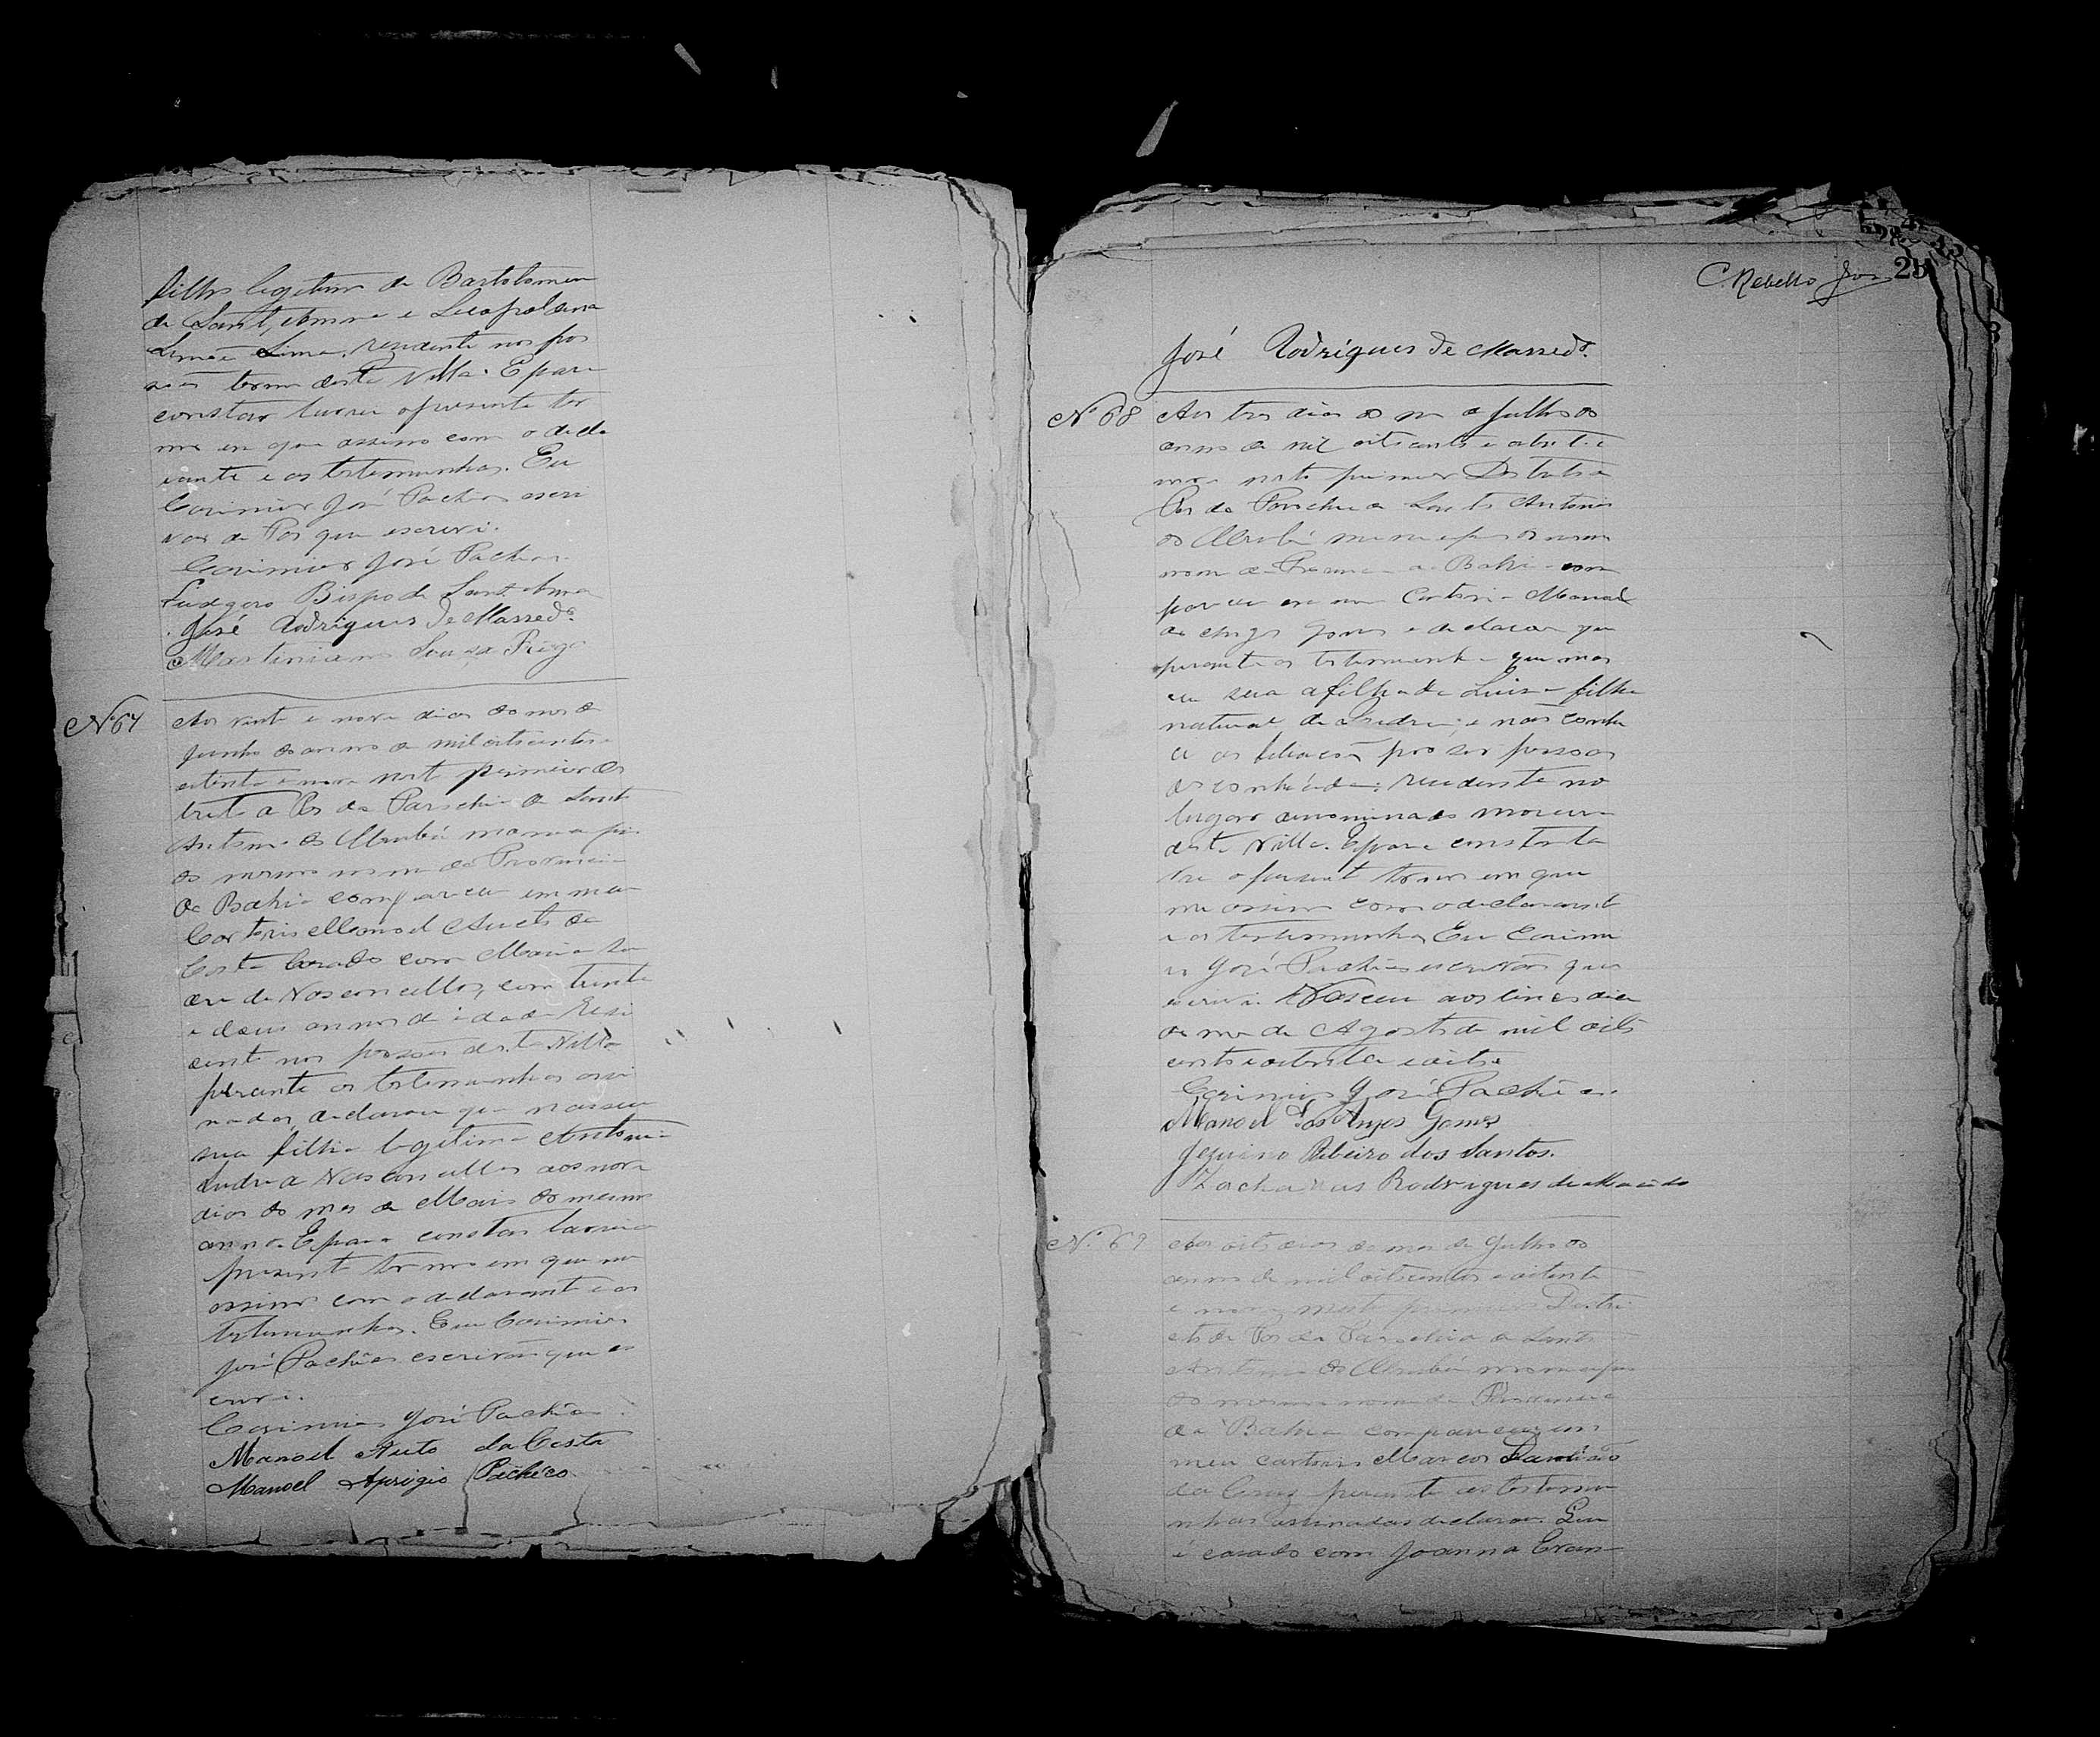 filho legitimo de Bartolomeu
de Sant'Anna e Leopoldina
Lima, residente nos pos
termo desta Villa. E para
constar lavrei o presente ter
mo em que assino com o decla
rante e as testemunhas. Eu
Casimiro José Pachêco escri
vão de Paz que escrevi.
Casimiro José Pachêco
Ludgero Bispo de Sant'Anna
José Rodrigues de Massedº
Martiniano Souza Prego
Nº 67 Aos vinte e nove dias do mes de
Junho do anno de mil oitocentos e
oitenta e nove neste primeiro Des
tricto de Paz da Parochia de Santo
Antonio do municipio
do mesmo nome da Provincia
da Bahia compareceu em meu
Cartorio Manoel Aucto da
Costa Casado com Maria
de Vasconcellos, com trinta
e dous annos de idade Resi
dente nos desta Villa
perante as testemunhas assi
nadas, declarou que nasceu
sua filha legitima Antonia
de Vasconcellos aos nove
dias do mes de Maio do mesmo
anno. E para constar lavrei o
presente termo em que me
assino com o declarante e as
testemunhas. Eu Casimiro
José Pachêco escrivão que es
crevi.
Casimiro José Pachêco
Manoel Auto da Costa
Manoel Aprigio Pachêco
C Rebello
25
José Rodrigues de Massedº.
Nº 68 Aos tres dias do mes de Julho do
anno de mil oitocentos e oitenta e
nove neste primeiro Destricto de
Paz da Parochia de Santo Antonio
do municipio do mesmo
nome da Provincia da Bahia com
pareceu em meu Cartorio Manoel
dos Anjos Gomes e declarou que
perante as testemunhas que nas
ceu sua afilhada Luisa filha
natural de e não conhe
ce as filiação por ser pessoas
desconhecidas; residente no
lugar denominado
desta Villa. E para constar la
vrei o presente termo em que
me assino com o declarante
e as testemunhas Eu Casimi
ro José Pachêco escrivão que
escrevi. Nasceu aos cinco dias
do mes de Agosto de mil oito
centos e oitenta e oito
Casimiro José Pachêco
Manoel dos Anjos Gomes
Jesuino Ribeiro dos Santos.
Zacharias Rodrigues de Macêdo
Nº 69 Aos oito dias do mes de Julho do
anno de mil oitocentos e oitenta
e nove neste primeiro Destri
cto de Paz da Parochia de Santo
Antonio do municipio
do mesmo nome da Provincia
da Bahia compareceu em
meu cartorio Marcos Damião
da Cruz perante as testemu
nhas assinadas declarou. Que
é casado com Joanna